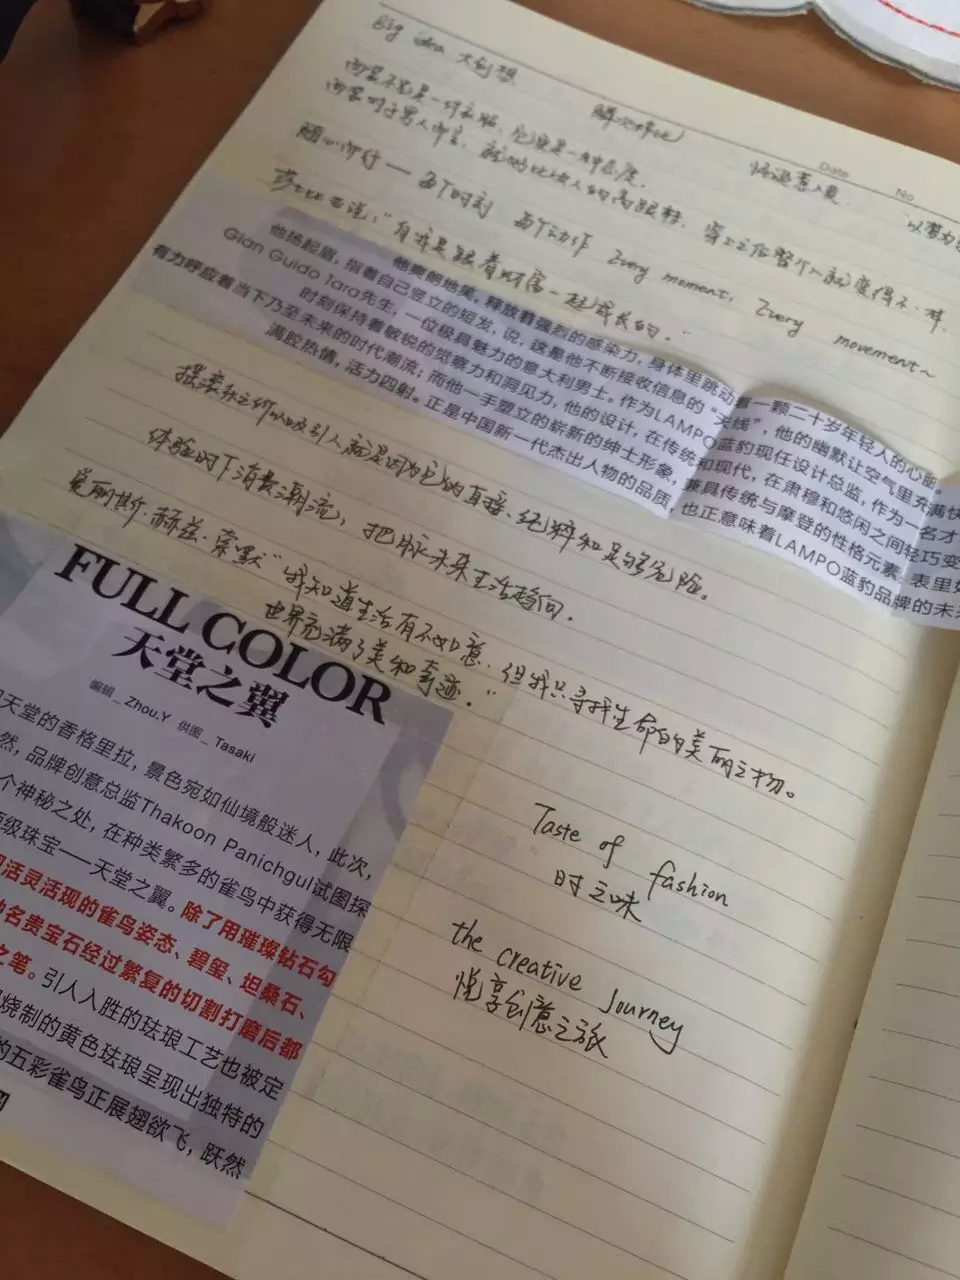 Big idea 大创想
Date
No
西装不仅是一件衣服、它更是一种态度.
西装对于男人而言、就好比女人的高跟鞋、穿上之后整个人就变得不一样.
随心而行——每个时刻 每个动作 Every moment, Every movement~
说:"自我是跟着时间一起成长的."
他爽朗地笑,释放着强烈的感染力,身体里跳动着一颗二十岁年轻人的心脏。
他扬起眉,指着自己竖立的短发,说,这是他不断接收信息的"天线",他的幽默让空气里充满快
Gian Guido Tara先生,一位极具魅力的意大利男士。作为LAMPO蓝豹现任设计总监,作为一名才
时刻保持着敏锐的觉察力和洞见力,他的设计,在传统和现代,在肃穆和悠闲之间轻巧变
有力呼应着当下乃至未来的时代潮流;而他一手塑立的崭新的绅士形象,兼具传统与摩登的性格元素,表里如
满腔热情,活力四射。正是中国新一代杰出人物的品质,也正意味着LAMPO蓝豹品牌的未来
摇滚乐之所以吸引人就是因为它的直接、纯粹和足够危险。
体验时下消费潮流,把脉未来生活趋向.
爱丽斯·赫兹·索默"我知道生活有不如意.但我只寻找生命的美丽之物。
世界充满了美和奇迹."
FULL COLOR
天堂之翼
编辑_ Zhou.Y 供图_ Tasaki
天堂的香格里拉,景色宛如仙境般迷人,此次,
然,品牌创意总监Thakoon Panichgul试图探
个神秘之处,在种类繁多的雀鸟中获得无限
级珠宝——天堂之翼。除了用璀璨钻石勾
活灵活现的雀鸟姿态、碧玺、坦桑石、
名贵宝石经过繁复的切割打磨后都
之笔。引人入胜的珐琅工艺也被定
烧制的黄色珐琅呈现出独特的
的五彩雀鸟正展翅欲飞,跃然
Taste of fashion
时之味
the creative Journey
悦享创意之旅